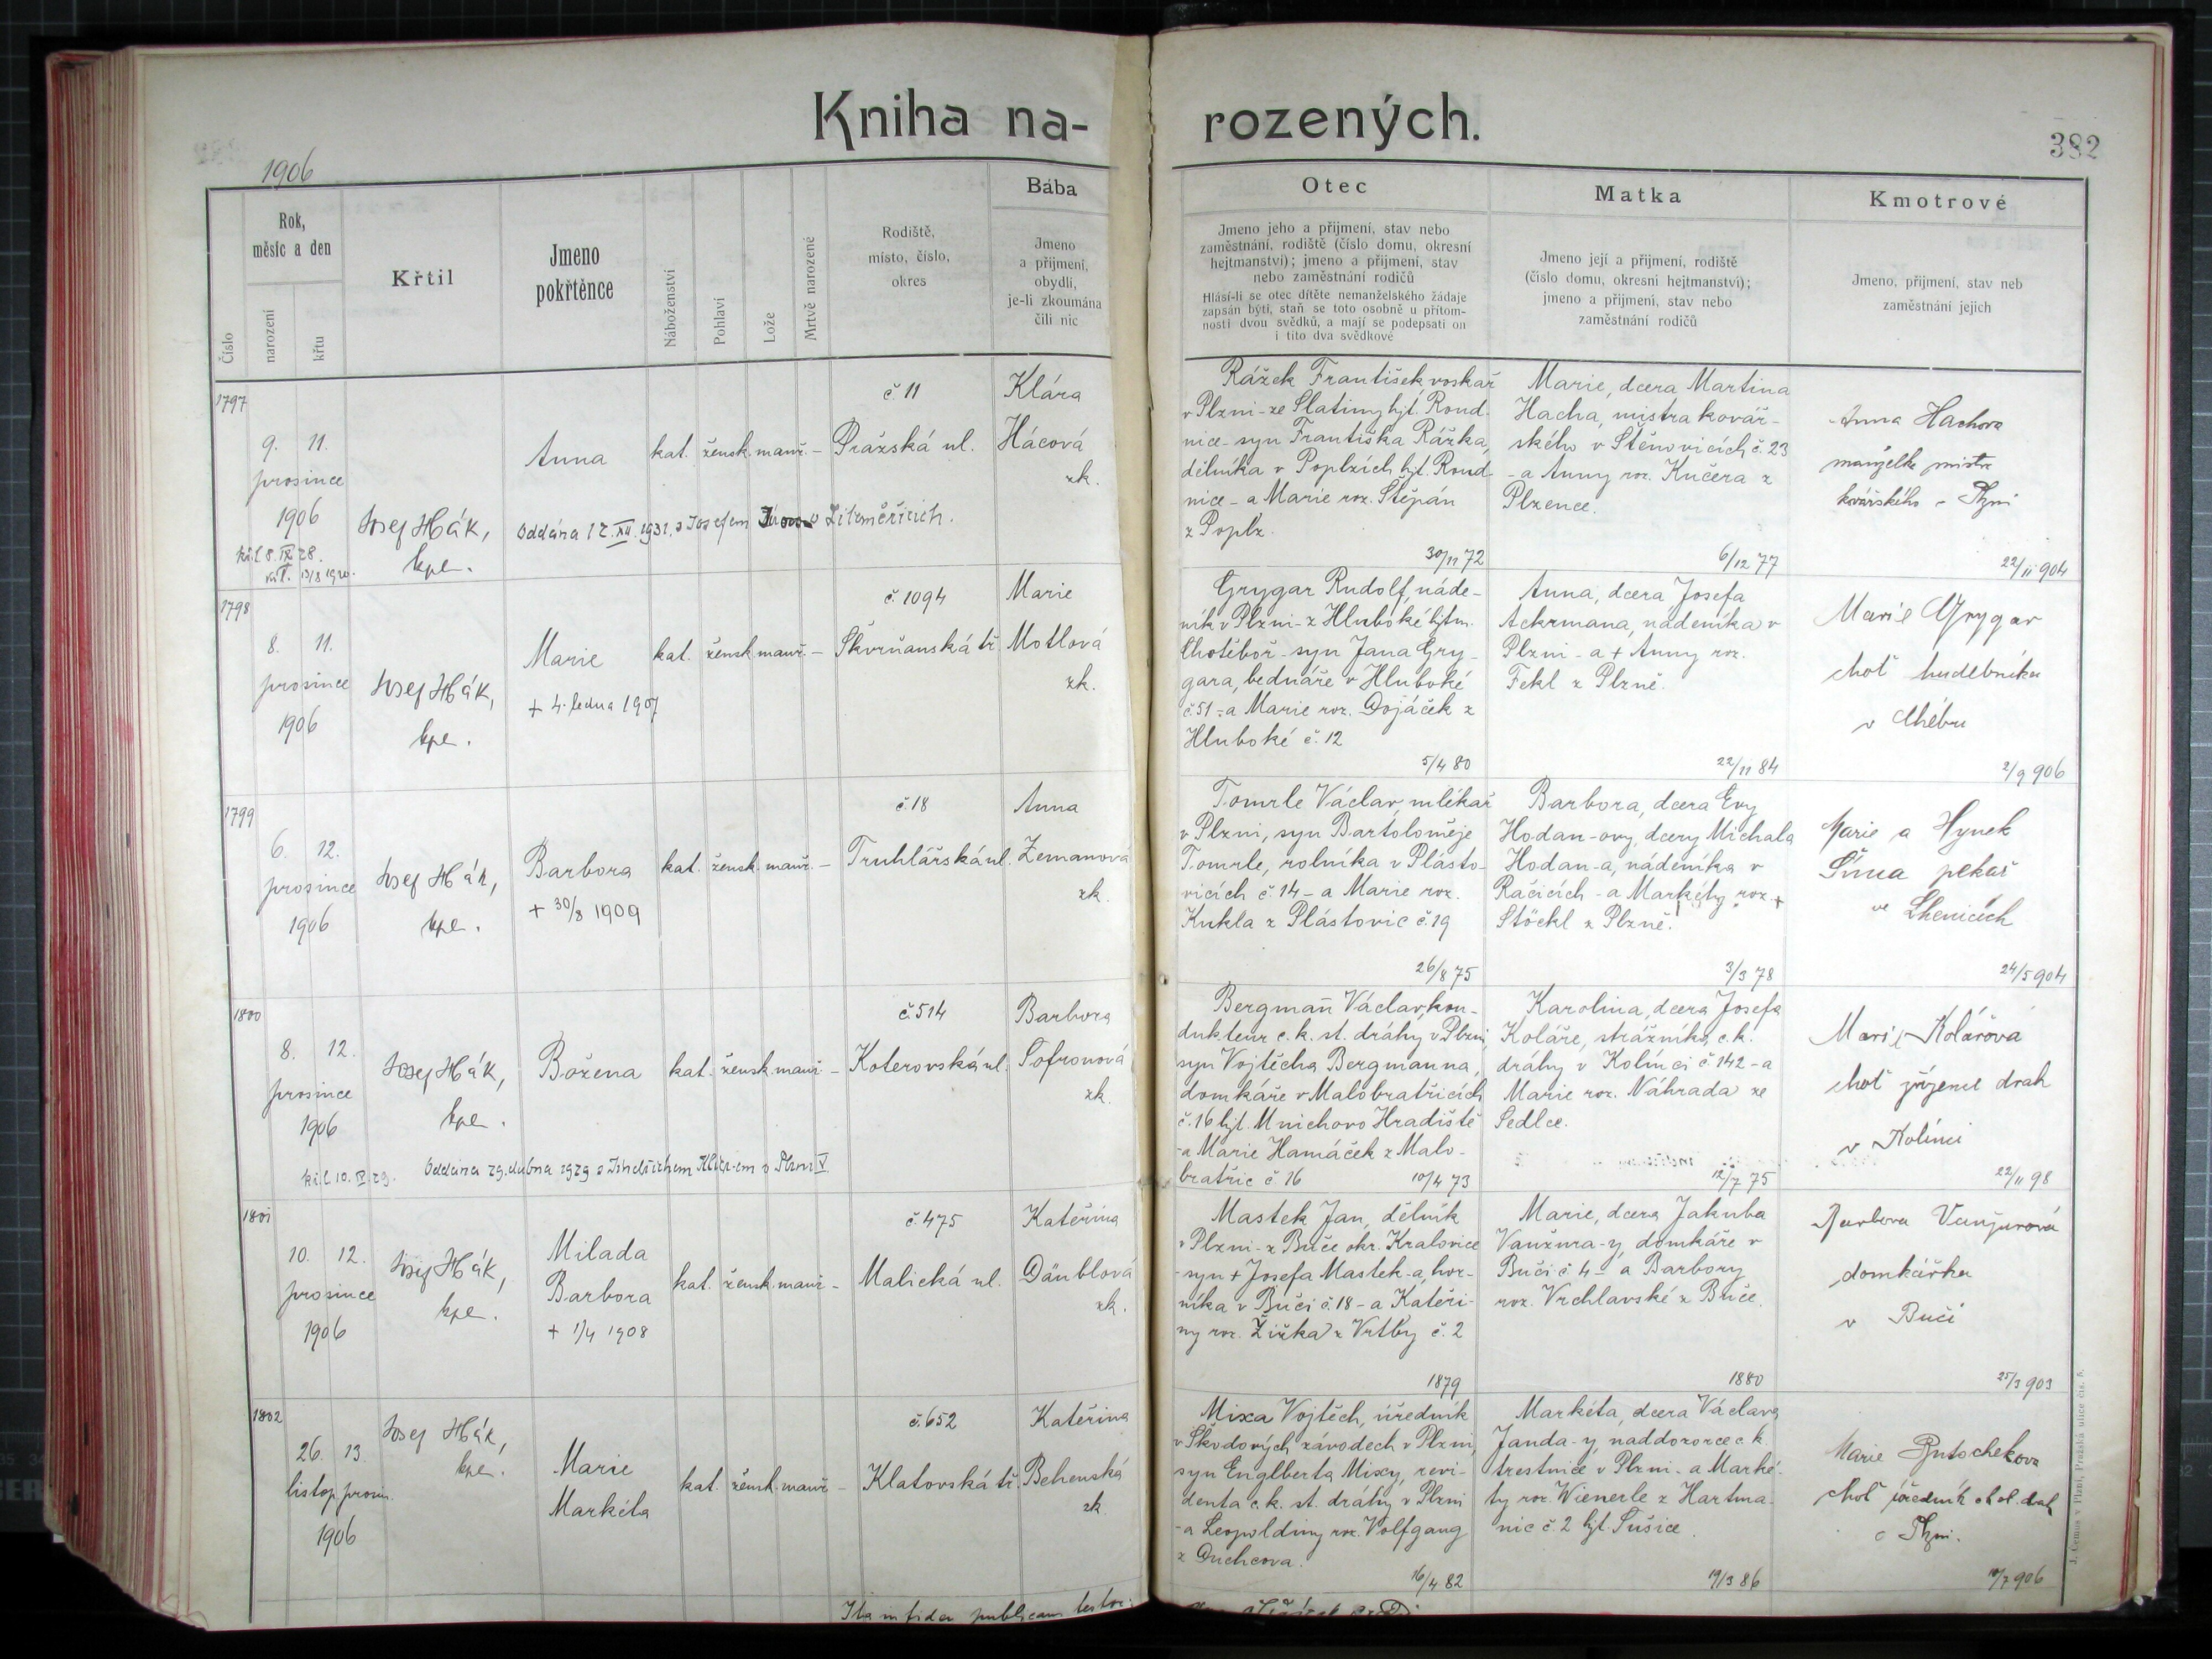 Kniha na-
rozených.
382
1906
Číslo
Rok,
měsíc a den
narození
křtu
Křtil
Jmeno
pokřtěnce
Náboženství
Pohlaví
Lože
Mrtvě narozené
Rodiště,
místo, číslo,
okres
Bába
Jmeno
a příjmení,
obydlí,
je-li zkoumána
čili nic
Otec
Jmeno jeho a příjmení, stav nebo
zaměstnání, rodiště (číslo domu, okresní
hejtmanství); jmeno a příjmení, stav
nebo zaměstnání rodičů
Hlásí-li se otec dítěte nemanželského žádaje
zapsán býti, staň se toto osobně u přítom-
nosti dvou svědků, a mají se podepsati on
i tito dva svědkové
Matka
Jmeno její a příjmení, rodiště
(číslo domu, okresní hejtmanství);
jmeno a příjmení, stav nebo
zaměstnání rodičů
Kmotrové
Jmeno, příjmení, stav neb
zaměstnání jejich
1797
9. 11.
prosince
1906
Josef Hák,
kpl.
Anna
kat. žensk. manž. –
č. 11
Pražská ul.
Klára
Hácová
zk.
Oddána 12. XII. 1931. s Josefem v Litoměřicích.
Rážek František, voskař
v Plzni - ze Slatiny hjt. Roud-
nice - syn Františka Rážka,
dělníka v Poplzích hjt. Roud-
nice - a Marie roz. Štěpán
z Poplz.
30/11 72
Marie, dcera Martina
Hacha, mistra kovář-
ského v Štěnovicích č. 23
- a Anny roz. Kučera z
Plzence.
6/12 77
Anna Hachova
manželka mistra
kovářského v Plzni
22/11 904
1798
8. 11.
prosince
1906
Josef Hák,
kpl.
Marie
+ 4. ledna 1907
kat. žensk manž. –
č. 1094
Skvrňanská tř.
Marie
Motlová
zk.
Grygar Rudolf, náde-
ník v Plzni - z Hluboké hjtm.
Chotěboř - syn Jana Gry-
gara, bednáře v Hluboké
č. 51 - a Marie roz. Dojáček z
Hluboké č. 12
5/4 80
Anna, dcera Josefa
Ackrmana, nádeníka v
Plzni - a + Anny roz.
Fekl z Plzně.
22/11 84
Marie Grygar
choť hudebníka
v Chébu
2/9 906
1799
6. 12.
prosince
1906
Josef Hák,
kpl.
Barbora
+ 30/8 1909
kat. žensk. manž. –
č. 18
Truhlářská ul.
Anna
Zemanová
zk.
Tomrle Václav, mlékař
v Plzni, syn Bartoloměje
Tomrle, rolníka v Plásto-
vicích č. 14 - a Marie roz.
Kukla z Plástovic č. 19
26/8 75
Barbora, dcera Evy
Hodan-ovy, dcery Michala
Hodan-a, nádeníka v
Račicích - a Markéty roz. +
Stöckl z Plzně.
3/3 78
Marie a Hynek
Šíma pekař
ve Lhenicích
24/5 904
1800
8. 12.
prosince
1906
Josef Hák,
kpl.
Božena
kat. žensk. manž. –
č. 514
Koterovská ul.
Barbora
Sofronová
zk.
Oddána 29. dubna 1929 s Jindřichem v Plzni V.
Bergmañ Václav, kon-
dukteur c. k. st. dráhy v Plzni
syn Vojtěcha Bergmanna,
domkáře v Malobratřicích
č. 16 hjt. Mnichovo Hradiště
- a Marie Hamáček z Malo-
bratřic č. 16
10/4 73
Karolina, dcera Josefa
Koláře, strážníka c. k.
dráhy v Kolínci č. 142 - a
Marie roz. Náhrada ze
Sedlce.
12/7 75
Marie Kolářová
choť zřízence drah
v Kolínci
22/11 98
1801
10. 12.
prosince
1906
Josef Hák,
kpl.
Milada
Barbora
+ 1/4 1908
kat. žensk. manž. –
č. 475
Malická ul.
Kateřina
Däublová
zk.
Mastek Jan, dělník
v Plzni - z Buče okr. Kralovice
- syn + Josefa Mastek-a, hor-
níka v Buči č. 18 - a Kateři-
ny roz. Žižka z Vrtby č. 2
1879
Marie, dcera Jakuba
Vanžura-y, domkáře v
Buči č 4 - a Barbory
roz. Vrchlavské z Buče.
1880
Barbora Vanžurová
domkářka
v Buči
25/3 903
1802
26. 13.
listop. prosin.
1906
Josef Hák,
kpl.
Marie
Markéta
kat. žensk. manž. –
č. 652
Klatovská tř.
Kateřina
Behenská
zk.
Mixa Vojtěch, úředník
v Škodových závodech v Plzni,
syn Englberta Mixy, revi-
denta c. k. st. dráhy v Plzni
- a Leopoldiny roz. Volfgang
z Duchcova.
16/4 82
Markéta, dcera Václava
Janda-y, naddozorce c. k.
trestnice v Plzni - a Marké-
ty roz. Wienerle z Hartma-
nic č. 2 hjt. Sušice.
19/3 86
Marie
choť úředník
v Plzni.
10/7 906
Ita in fidem publicam testor:
J. Černos v Plzni, Pražská ulice čís. 8.